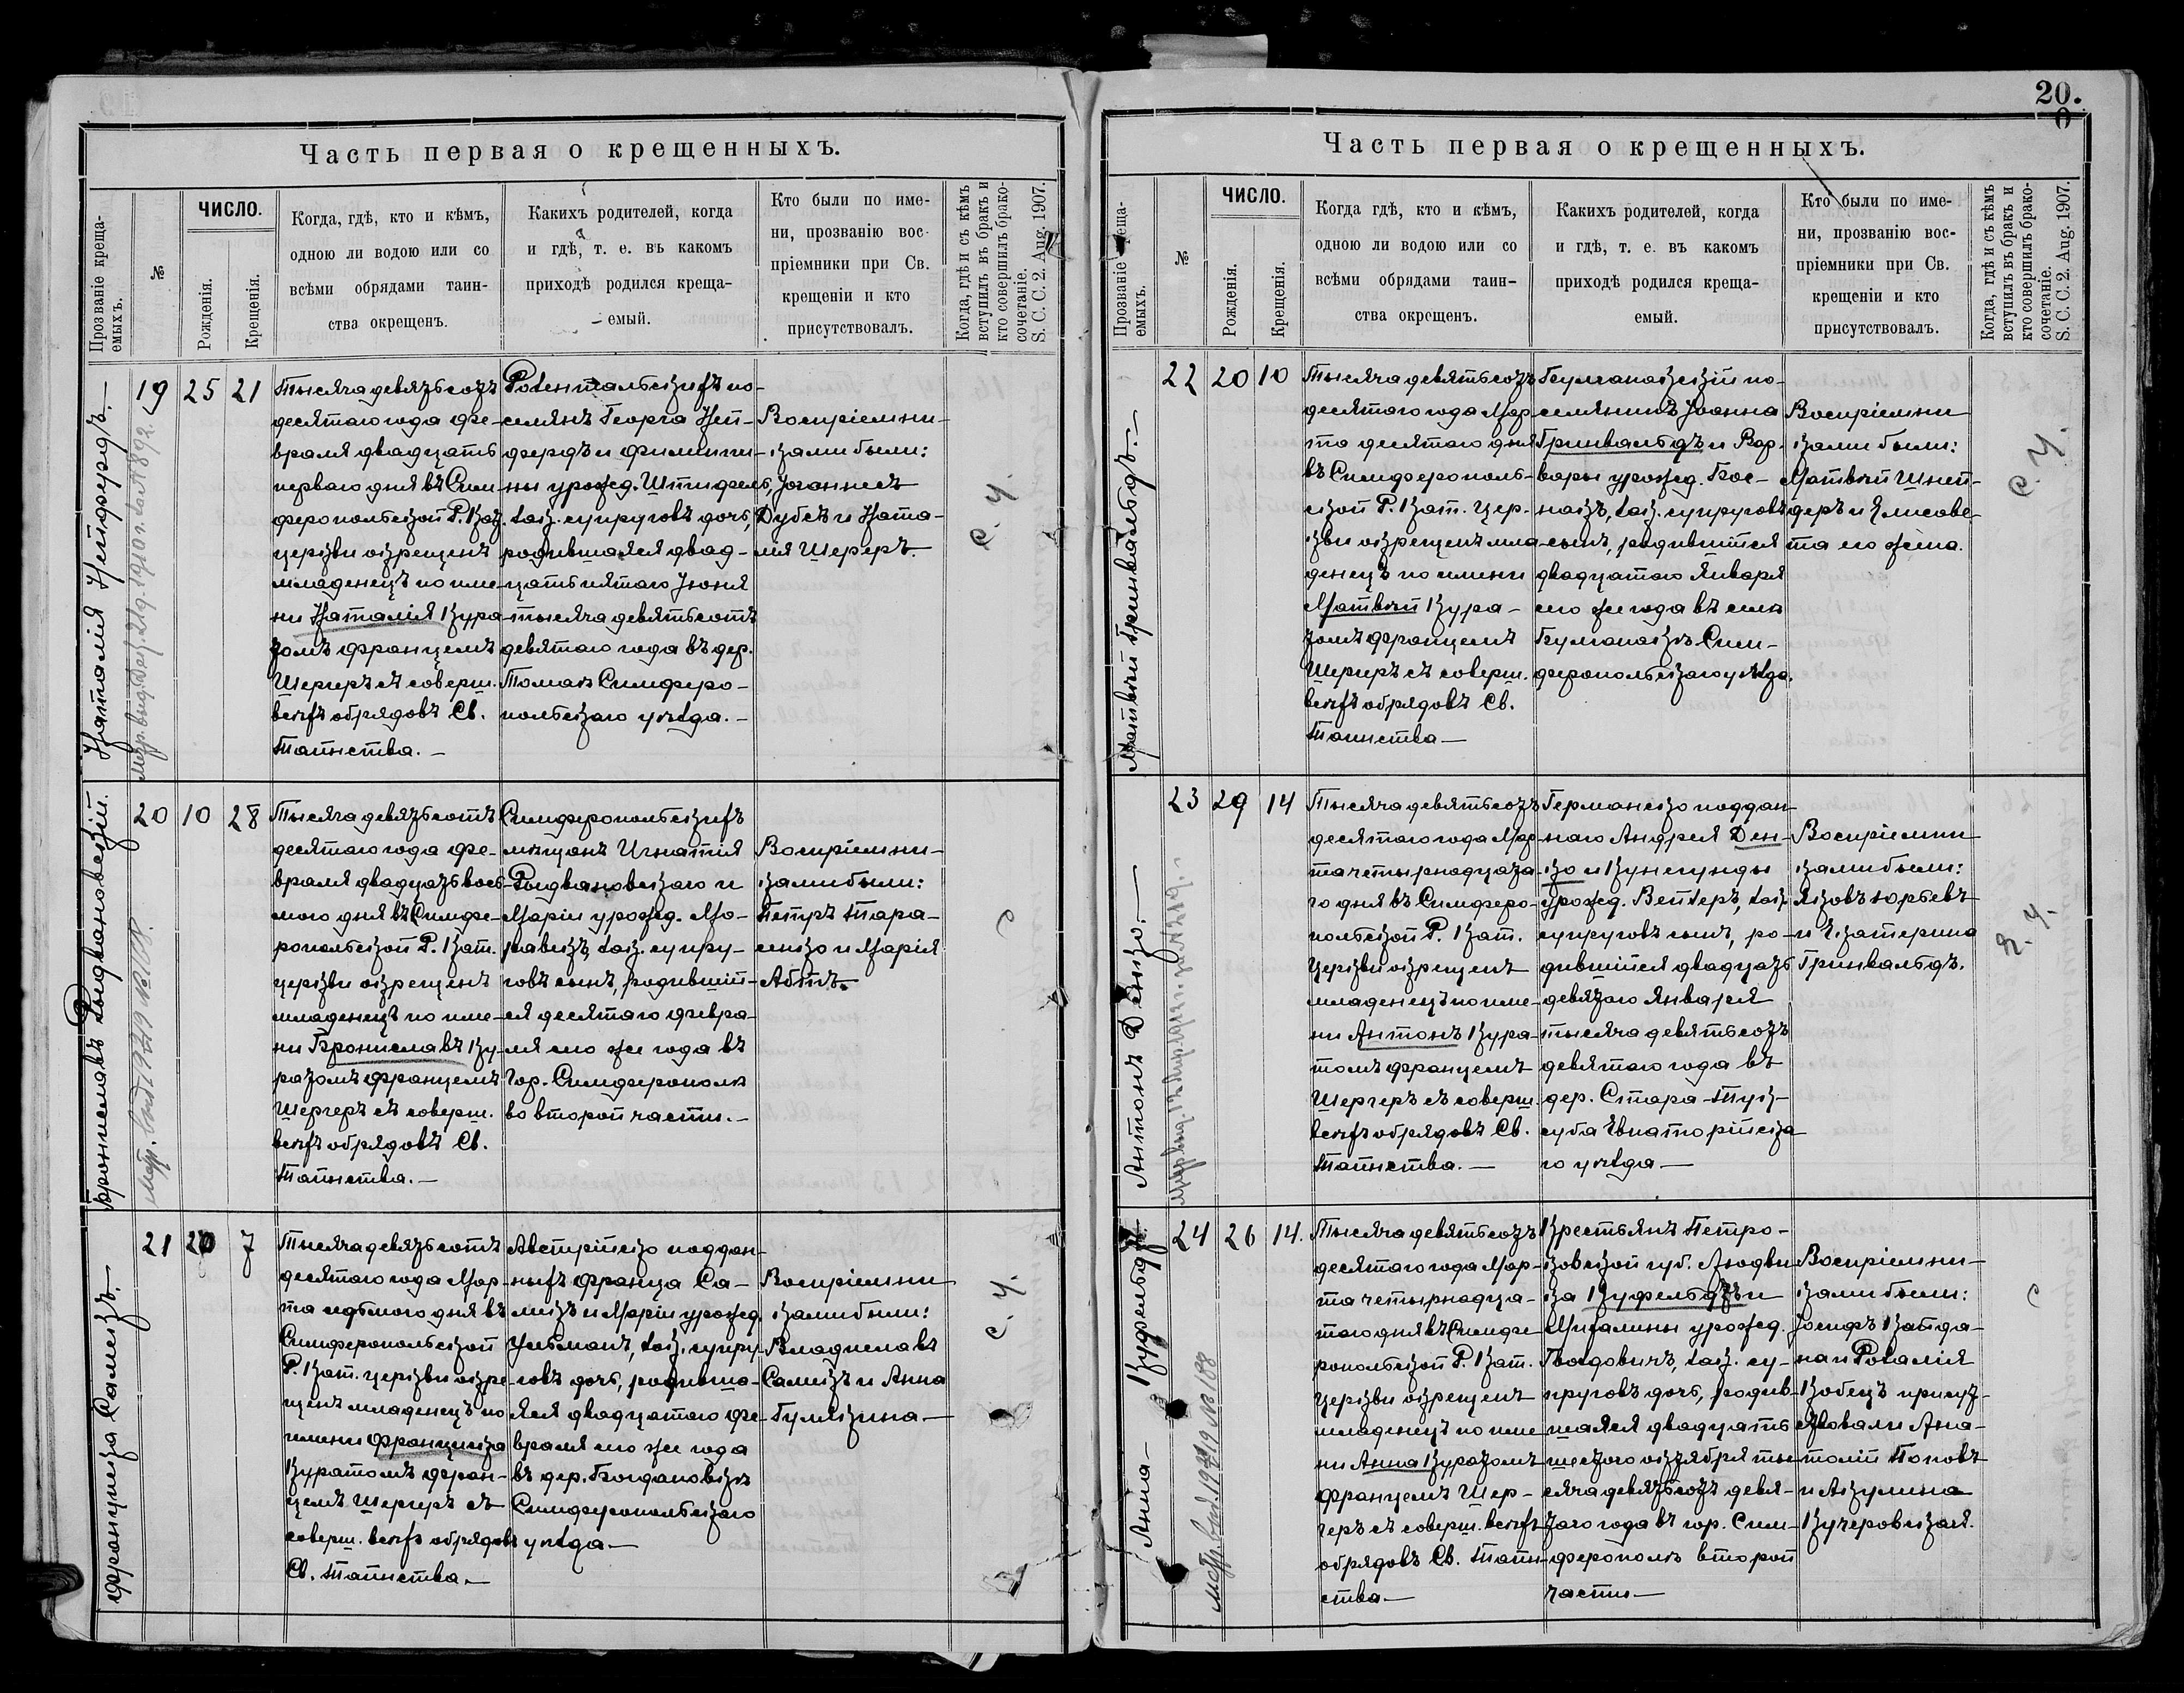 20.
Часть первая о крещенныхъ.
Прозваніе креща-
емыхъ.
№
ЧИСЛО.
Рожденія.
Крещенія.
Когда, гдѣ, кто и кѣмъ,
одною ли водою или со
всѣми обрядами таин-
ства окрещенъ.
Какихъ родителей, когда
и гдѣ, т. е. въ какомъ
приходѣ родился креща-
емый.
Кто были по име-
ни, прозванію вос-
пріемники при Св.
крещеніи и кто
присутствовалъ.
Когда, гдѣ и съ кѣмъ
вступилъ въ бракъ и
кто совершилъ брако-
сочетаніе.
S. C. C. 2. Aug. 1907.
Наталія Нейфердъ.—
19
25
21
Тысяча девятьсотъ
десятаго года Фе-
враля двадцать
перваго дня въ Сим-
феропольской Р. Кат.
церкви окрещенъ
младенецъ по име-
ни Наталія Кура-
томъ Францемъ
Шергеръ съ соверш.
всѣхъ обрядовъ Св.
Таинства.—
Розентальскихъ по-
селянъ Георга Ней-
фердъ и Филиппи-
ны урожд. Штифель,
зак. супруговъ дочь,
родившаяся двад-
цать пятаго Іюня
тысяча девятьсотъ
девятаго года въ дер.
Томакъ Симферо-
польскаго уѣзда.—
Воспріемни-
ками были:
Іоаннесъ
Дубсъ и Ната-
лія Шереръ.—
с. у.
Брониславъ Рыдвановскій.
20
10
28
Тысяча девятьсотъ
десятаго года Фе-
враля двадцать вось-
мого дня въ Симфе-
ропольской Р. Кат.
церкви окрещенъ
младенецъ по име-
ни Брониславъ Ку-
ратомъ Францемъ
Шергеръ съ соверш.
всѣхъ обрядовъ Св.
Таинства.—
Симферопольскихъ
мѣщанъ Игнатія
Рыдвановскаго и
Маріи урожд. Мо-
равскъ, зак. супру-
говъ сынъ, родившій-
ся десятаго февра-
ля сего же года въ
гор. Симферополѣ
во второй части.—
Воспріемни-
ками были:
Петръ Тара-
сенко и Марія
Абтъ.
с
Францишка Самекъ.—
21
20
7
Тысяча девятьсотъ
десятаго года Мар-
та седьмого дня въ
Симферопольской
Р. Кат. церкви окре-
щенъ младенецъ по
имени Францишка
Куратомъ Фран-
цемъ Шергеръ съ
соверш. всѣхъ обрядовъ
Св. Таинства.—
Австрійско поддан-
ныхъ Франца Са-
мекъ и Маріи урожд.
Ульманъ, зак. супру-
говъ дочь, родивша-
яся двадцатаго Фе-
враля сего же года
въ дер. Богдановкѣ
Симферопольскаго
уѣзда—
Воспріемни
ками были:
Владиславъ
Самекъ и Анна
Гулякина—
с. у.
Часть первая о крещенныхъ.
Прозваніе креща-
емыхъ.
№
ЧИСЛО.
Рожденія.
Крещенія.
Когда гдѣ, кто и кѣмъ,
одною ли водою или со
всѣми обрядами таин-
ства окрещенъ.
Какихъ родителей, когда
и гдѣ, т. е. въ какомъ
приходѣ родился креща-
емый.
Кто были по име-
ни, прозванію вос-
пріемники при Св.
крещеніи и кто
присутствовалъ.
Когда, гдѣ и съ кѣмъ
вступилъ въ бракъ и
кто совершилъ брако-
сочетаніе.
S. C. C. 2. Aug. 1907.
Матвѣй Гринвальдъ.—
22
20
10
Тысяча девятьсотъ
десятаго года Мар-
та десятаго дня
въ Симферополь-
ской Р. Кат. цер-
кви окрещенъ мла-
денецъ по имени
Матвѣй Кура-
томъ Францемъ
Шергеръ съ соверш.
всѣхъ обрядовъ Св.
Таинства—
Булганакскій по-
селянинъ Іоанна
Гринвальдъ и Вар-
вары урожд. Бос-
накъ, зак. супруговъ
сынъ, родившійся
двадцатаго Января
сего же года въ селѣ
Булганакъ Сим-
феропольскаго уѣзда.
Воспріемни
ками были:
Матвѣй Шней-
деръ и Елисаве-
та его жена.
с. у.
Антонъ Денко.—
23
29
14
Тысяча девятьсотъ
десятаго года Мар
та четырнадцата-
го дня въ Симферо-
польской Р. Кат.
церкви окрещенъ
младенецъ по име-
ни Антонъ Кура-
томъ Францемъ
Шергеръ съ соверш.
всѣхъ обрядовъ Св.
Таинства.—
Германско поддан-
наго Андрея Ден-
ко и Кунегунды
урожд. Вентеръ, зак.
супруговъ сынъ, ро-
дившійся двадцать
девятаго Января
тысяча девятьсотъ
девятаго года въ
дер. Стара-Тук-
суба Евпаторійска
го уѣзда—
Воспріемни
ками были:
Яковъ Юрьевъ
и Екатерина
Гринвальдъ.
Анна— Куфельдтъ.
24
26
14.
Тысяча девятьсотъ
десятаго года Мар-
та четырнадца-
таго дня въ Симфе
ропольской Р. Кат.
церкви окрещенъ
младенецъ по име
ни Анна Куратомъ
Францемъ Шер-
геръ съ соверш. всѣхъ
обрядовъ Св. Таин-
ства—
Крестьянъ Петро-
ковской губ. Людви
ка Куфельдтъ и
Михалины урожд.
Гвоздовичъ, зак. су-
пруговъ дочь, родив-
шаяся двадцать
шестого октября ты-
сяча девятьсотъ девя-
таго года въ гор. Сим-
ферополѣ второй
части—
Воспріемни-
ками были:
Іосифъ Кайда-
на и Розалія
Кобецъ присут-
ствовали Ана-
толій Поповъ
и Акулина
Кучеровская.
с